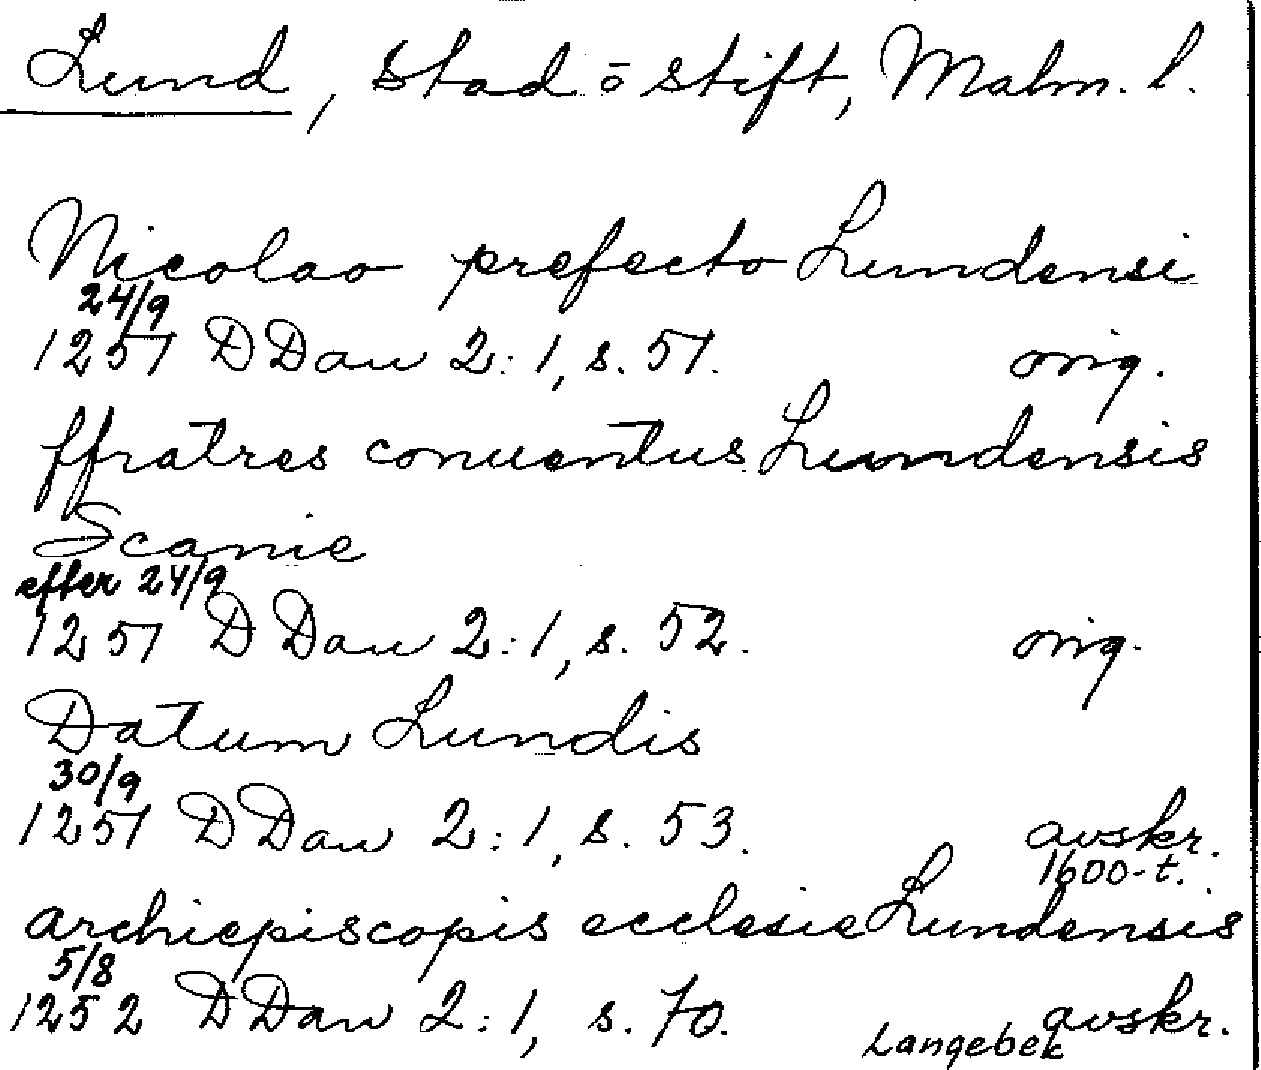 Lund, stad ō stift, Malm. l.
Nicolao prefecto Lundensi
24/9
1251 DDan 2:1, s. 51. orig.
ffratres conuentus Lundensis
Scanie
efter 24/9
1251 DDan 2:1, s. 52. orig.
Datum Lundis
30/9
1251 DDan 2:1, s. 53. avskr.
1600-t.
archiepiscopis ecclesie Lundensis
5/8
1252 DDan 2:1, s. 70. avskr.
Langebek